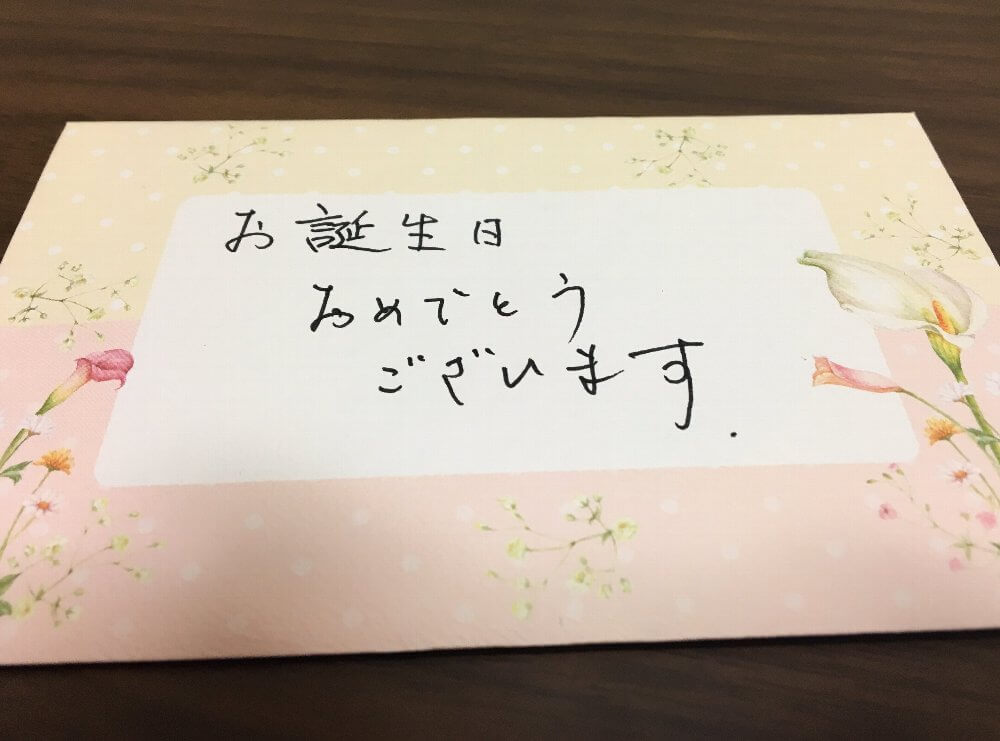 お誕生日
おめでとう
ございます.